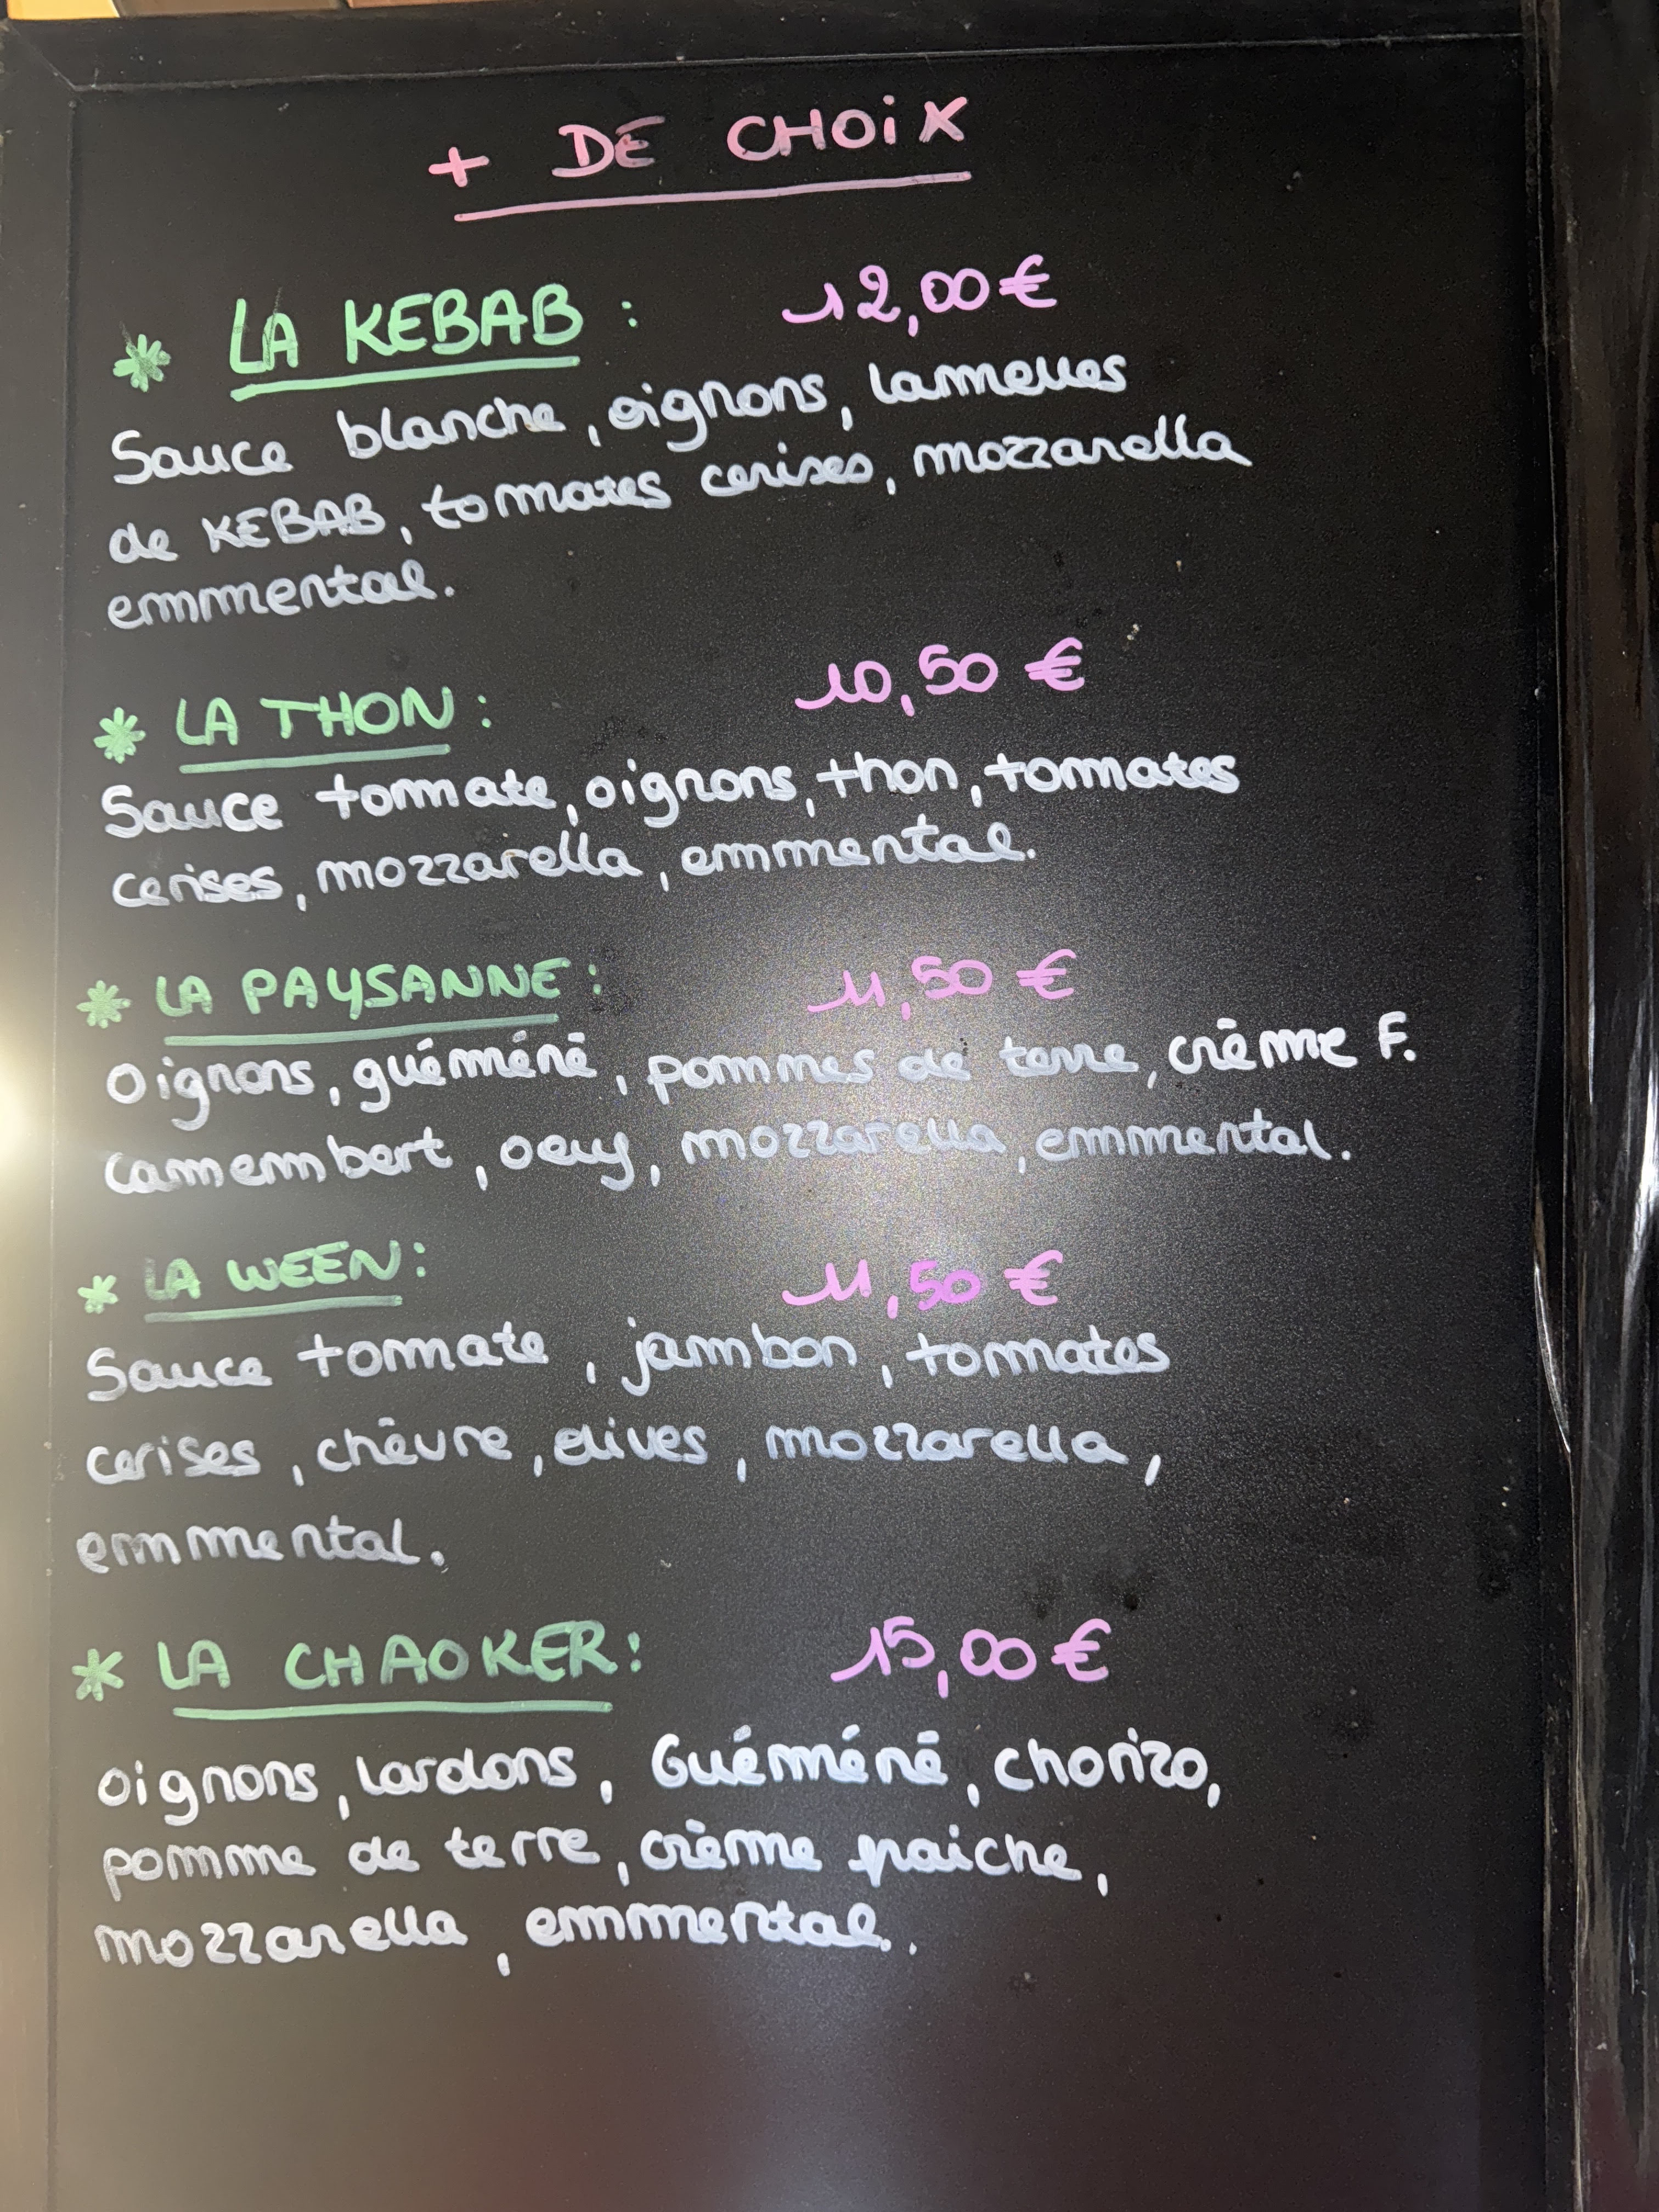 + DE CHOiX
* LA KEBAB : 12,00 €
Sauce blanche, oignons, lamelles
de KEBAB, tomates cerises, mozzarella
emmental.
* LA THON : 10,50 €
Sauce tomate, oignons, thon, tomates
cerises, mozzarella, emmental.
* LA PAYSANNE : 11,50 €
Oignons, guéméné, pommes de terre, crème F.
camembert, oeuf, mozzarella, emmental.
* LA WEEN : 11,50 €
Sauce tomate, jambon, tomates
cerises, chèvre, olives, mozzarella,
emmental.
* LA CHAOKER : 15,00 €
oignons, lardons, Guéméné, chorizo,
pomme de terre, crème fraiche,
mozzarella, emmental..